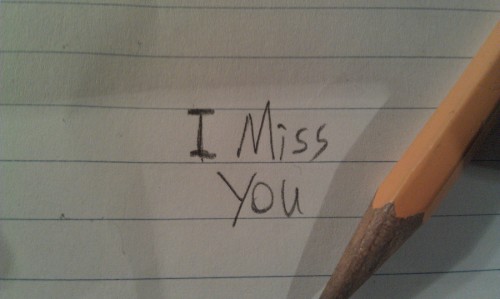 I Miss
You